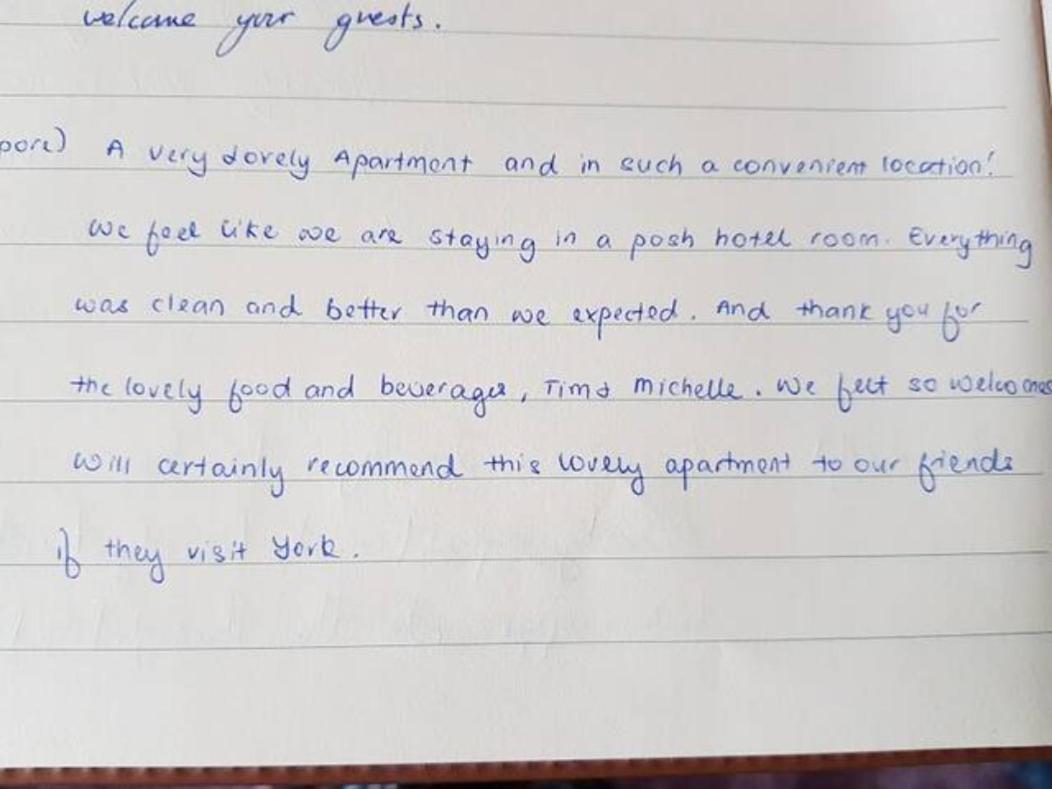 welcome your guests.
pore) A very lovely Apartment and in such a convenient location!
We feel like we are staying in a posh hotel room. Everything
was clean and better than we expected. And thank you for
the lovely food and beverages, Tim & Michelle. We felt so welcomed
Will certainly recommend this lovely apartment to our friends
if they visit York.